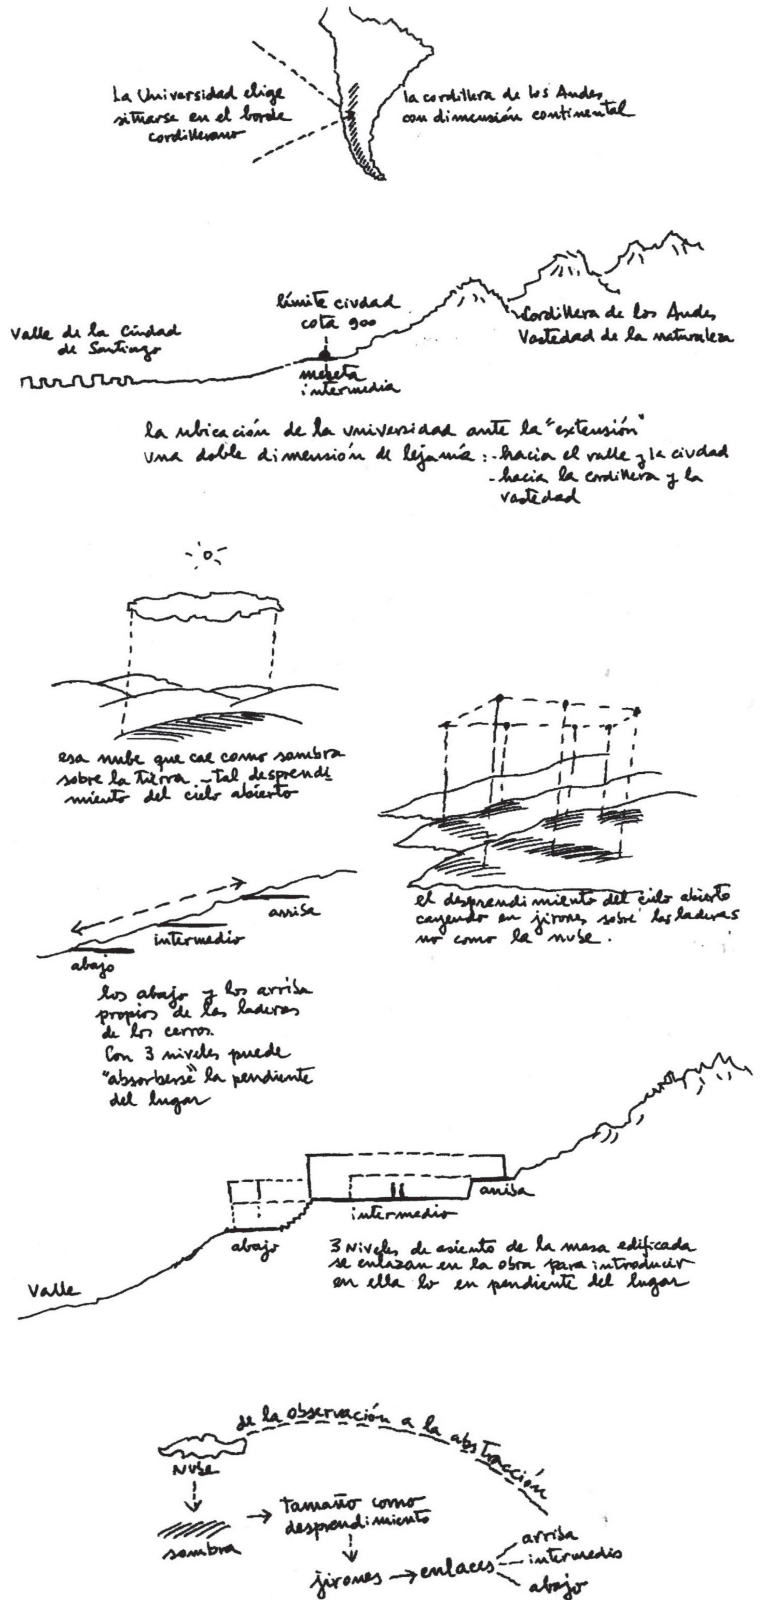 La Universidad elige
situarse en el borde
cordillerano
la cordillera de los Andes
con dimensión continental
Valle de la Ciudad
de Santiago
límite ciudad
cota 900
meseta
intermedia
Cordillera de los Andes
Vastedad de la naturaleza
la ubicación de la universidad ante la "extensión"
una doble dimensión de lejanía: -hacia el valle y la ciudad
-hacia la cordillera y la
vastedad
esa nube que cae como sombra
sobre la tierra - tal desprendi
miento del cielo abierto
el desprendimiento del cielo abierto
cayendo en jirones sobre las laderas
no como la nube.
arriba
intermedio
abajo
los abajo y los arriba
propios de las laderas
de los cerros.
Con 3 niveles puede
"absorberse" la pendiente
del lugar
arriba
intermedio
abajo
Valle
3 Niveles de asiento de la masa edificada
se enlazan en la obra para introducir
en ella lo en pendiente del lugar
de la observación a la abstracción
NUBE
sombra
tamaño como
desprendimiento
jirones → enlaces
arriba
intermedio
abajo